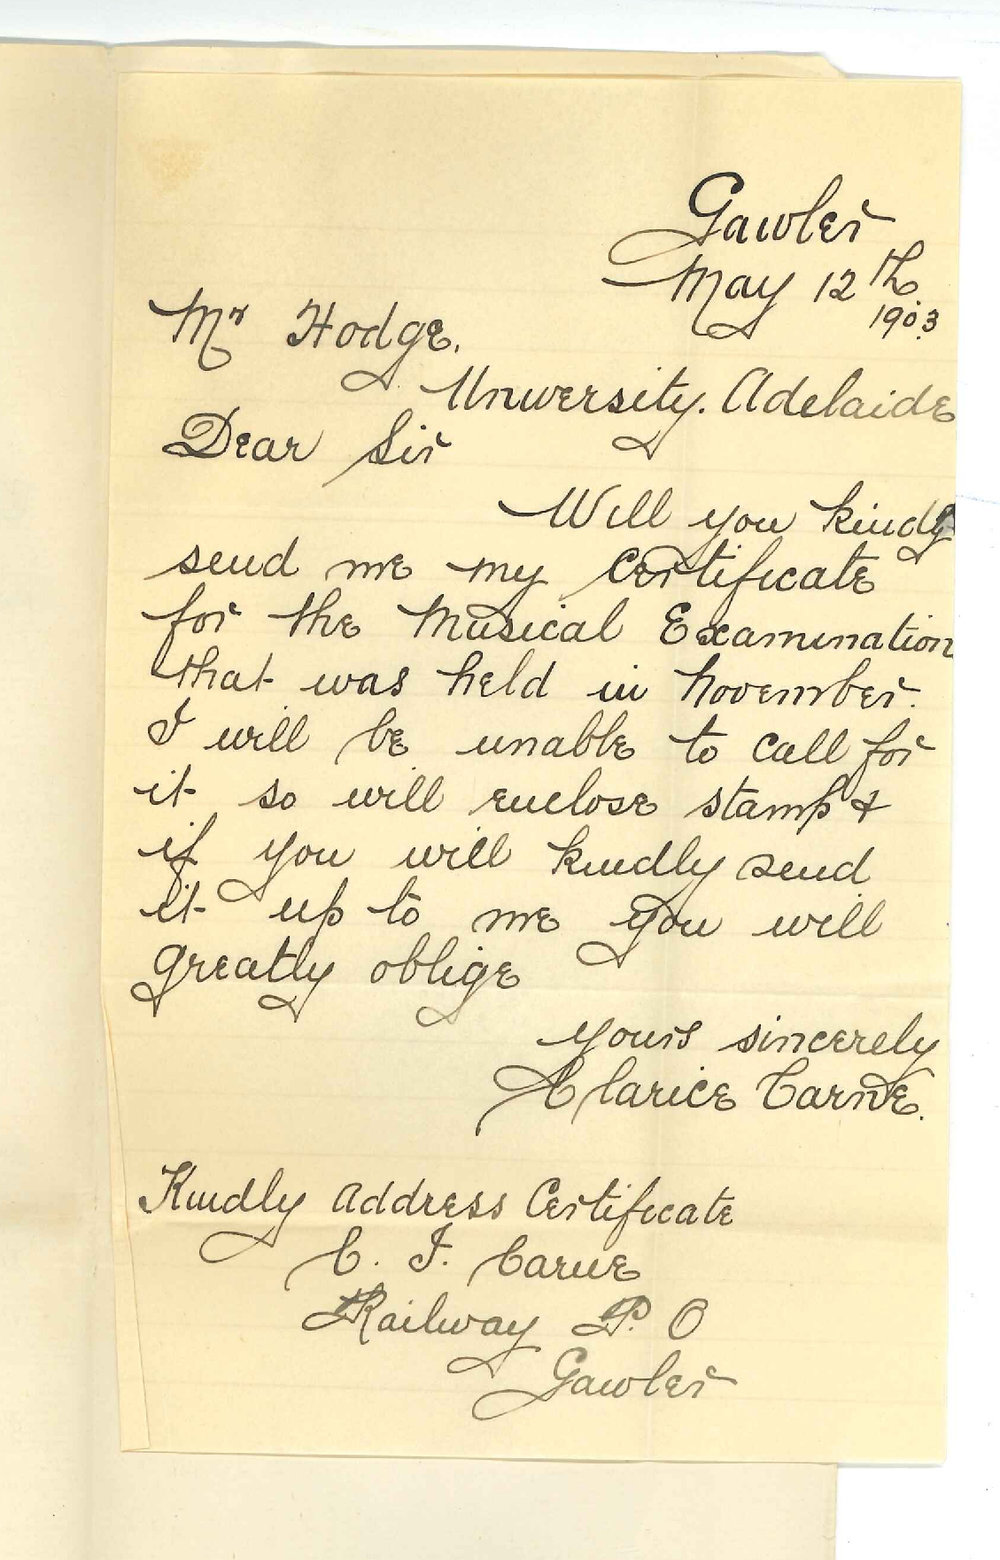 Gawler
May 12th
1903
Mr Hodge.
University. Adelaide
Dear Sir
Will you kindly
send me my Certificate
for the Musical Examination
that was held in November.
I will be unable to call for
it so will enclose stamp &
if you will kindly send
it up to me you will
greatly oblige
yours sincerely
Clarice Carne.
Kindly address Certificate
C. I. Carne
Railway P. O
Gawler